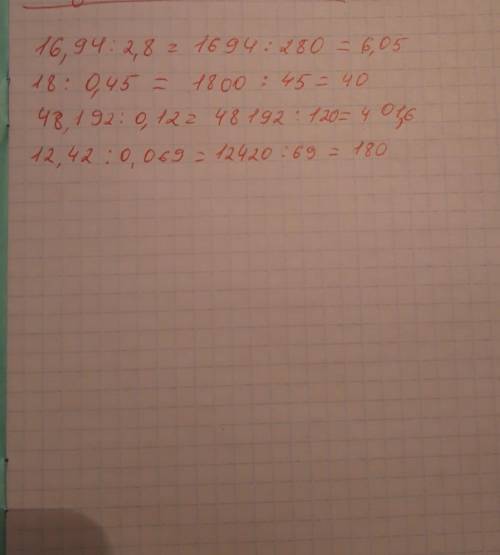 16,94 : 2,8 = 1694 : 280 = 6,05
18 : 0,45 = 1800 : 45 = 40
48,192 : 0,12 = 48192 : 120 = 401,6
12,42 : 0,069 = 12420 : 69 = 180